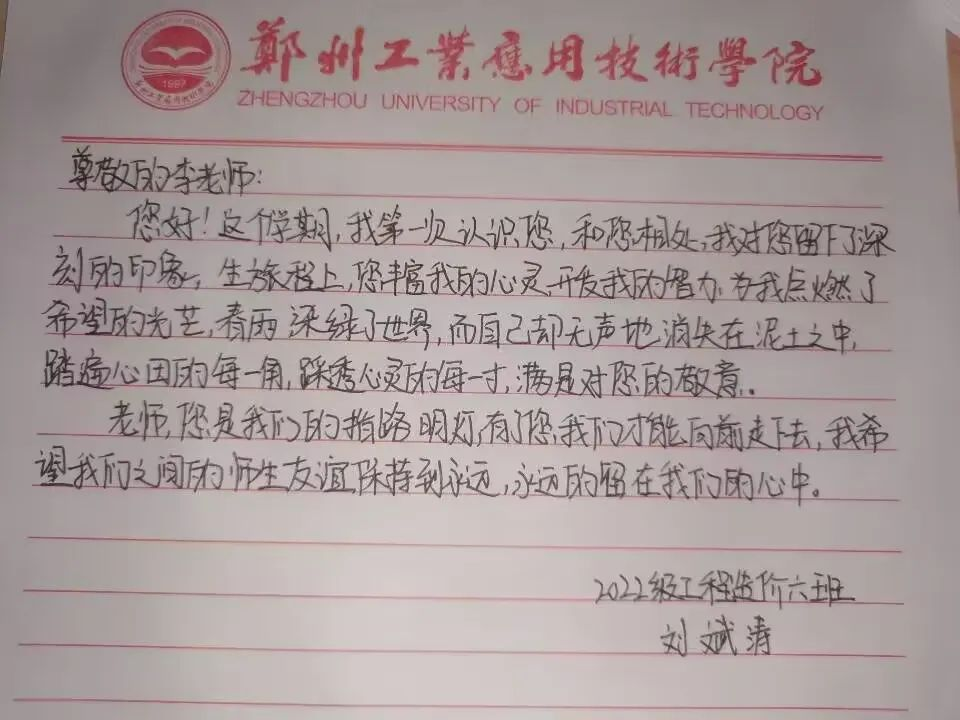 鄭州工業應用技術學院
ZHENGZHOU UNIVERSITY OF INDUSTRIAL TECHNOLOGY
1997
尊敬的李老师:
您好!这个学期,我第一次认识您,和您相处,我对您留下了深
刻的印象,生旅程上,您丰富我的心灵,开发我的智力,为我点燃了
希望的光芒,春雨 深绿了世界,而自己却无声地消失在泥土之中,
踏遍心田的每一角,踩透心灵的每一寸,满是对您的敬意。
老师,您是我们的指路明灯,有了您,我们才能向前走下去,我希
望我们之间的师生友谊保持到永远,永远的留在我们的心中。
2022级工程造价六班
刘斌涛